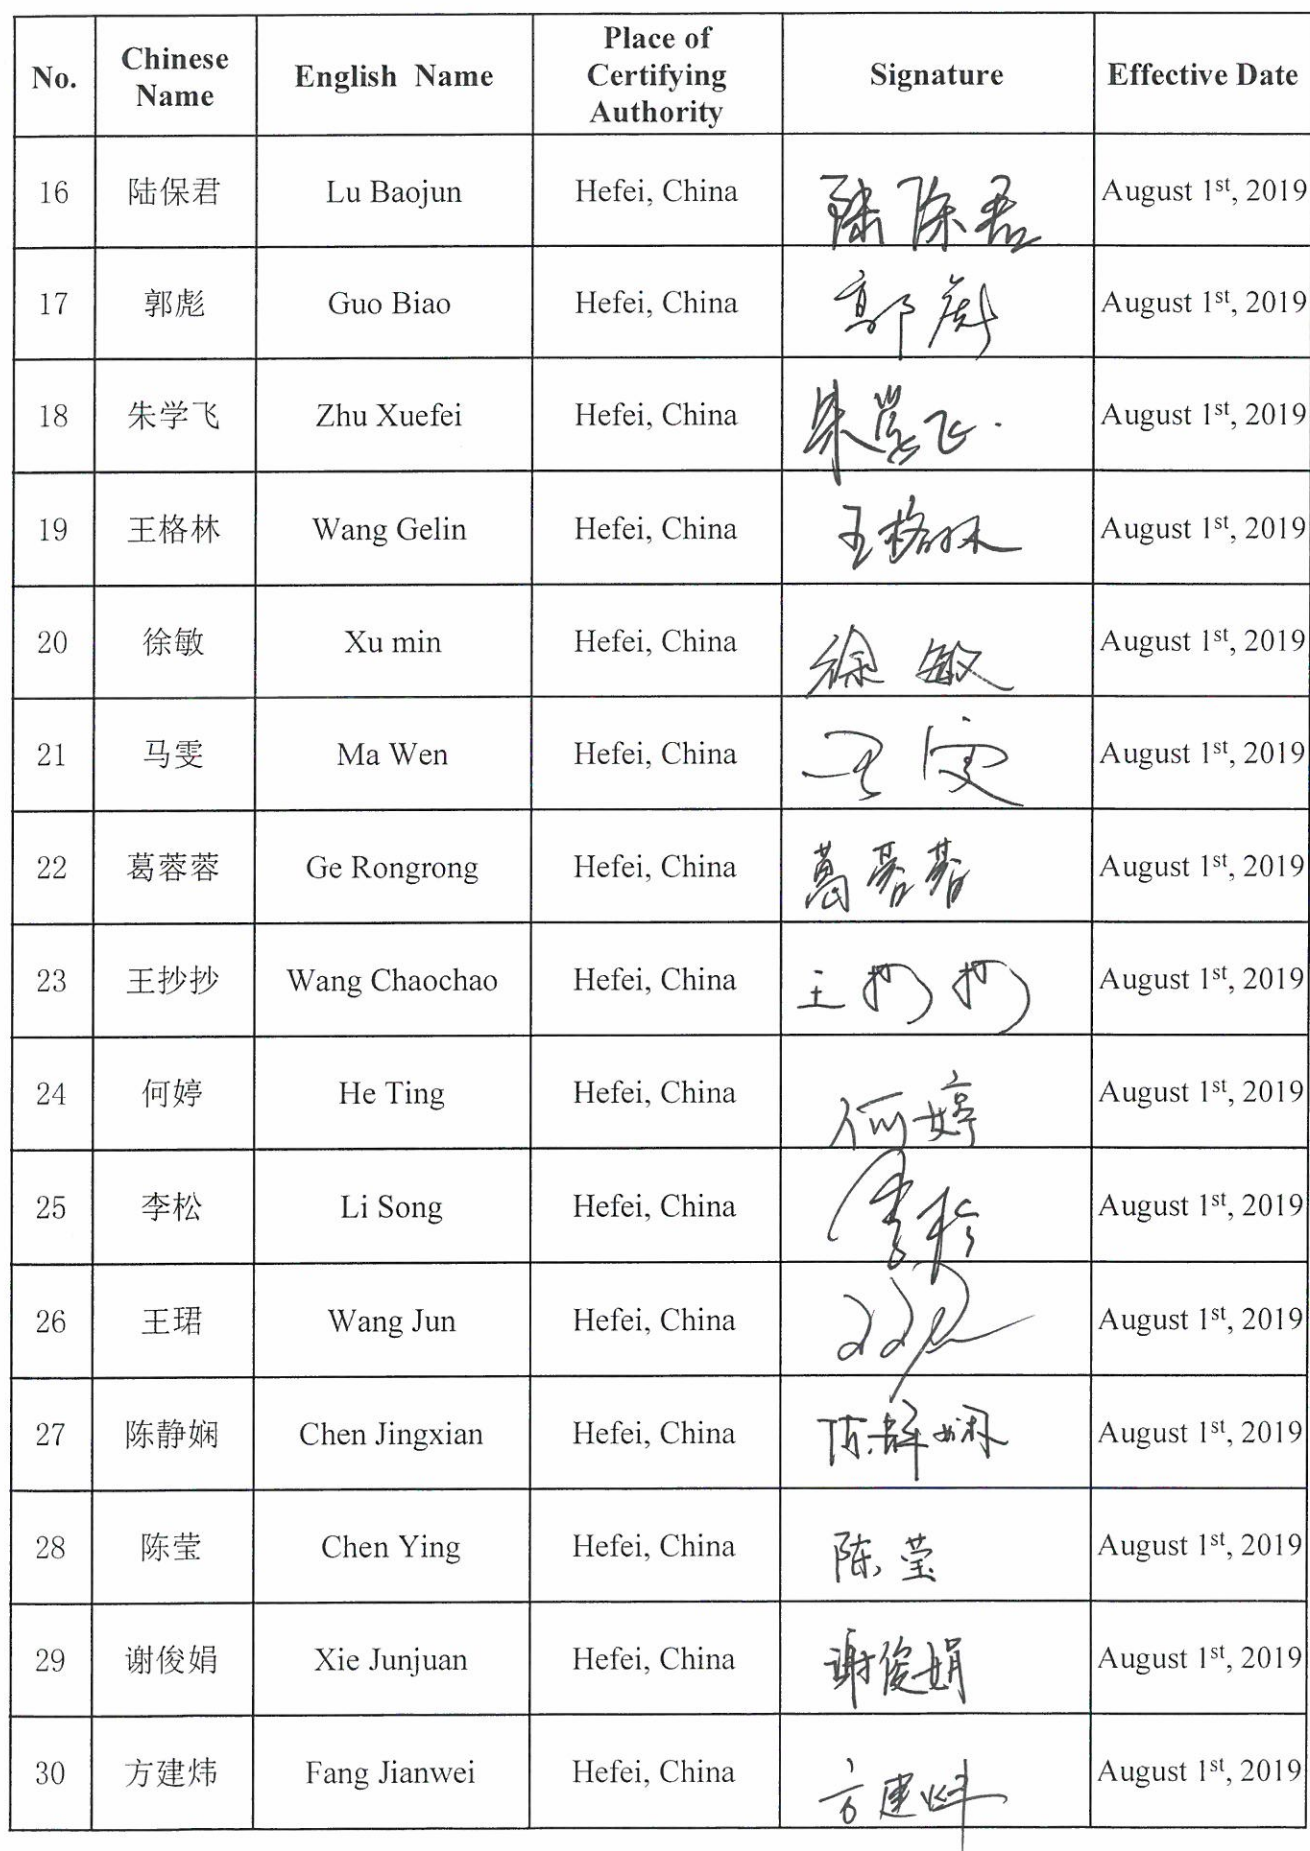 No. Chinese Name English Name Place of Certifying Authority Signature Effective Date
16 陆保君 Lu Baojun Hefei, China 陆保君 August 1st, 2019
17 郭彪 Guo Biao Hefei, China 郭彪 August 1st, 2019
18 朱学飞 Zhu Xuefei Hefei, China 朱学飞 August 1st, 2019
19 王格林 Wang Gelin Hefei, China 王格林 August 1st, 2019
20 徐敏 Xu min Hefei, China 徐敏 August 1st, 2019
21 马雯 Ma Wen Hefei, China 马雯 August 1st, 2019
22 葛蓉蓉 Ge Rongrong Hefei, China 葛蓉蓉 August 1st, 2019
23 王抄抄 Wang Chaochao Hefei, China 王抄抄 August 1st, 2019
24 何婷 He Ting Hefei, China 何婷 August 1st, 2019
25 李松 Li Song Hefei, China 李松 August 1st, 2019
26 王珺 Wang Jun Hefei, China August 1st, 2019
27 陈静娴 Chen Jingxian Hefei, China 陈静娴 August 1st, 2019
28 陈莹 Chen Ying Hefei, China 陈莹 August 1st, 2019
29 谢俊娟 Xie Junjuan Hefei, China 谢俊娟 August 1st, 2019
30 方建炜 Fang Jianwei Hefei, China 方建炜 August 1st, 2019